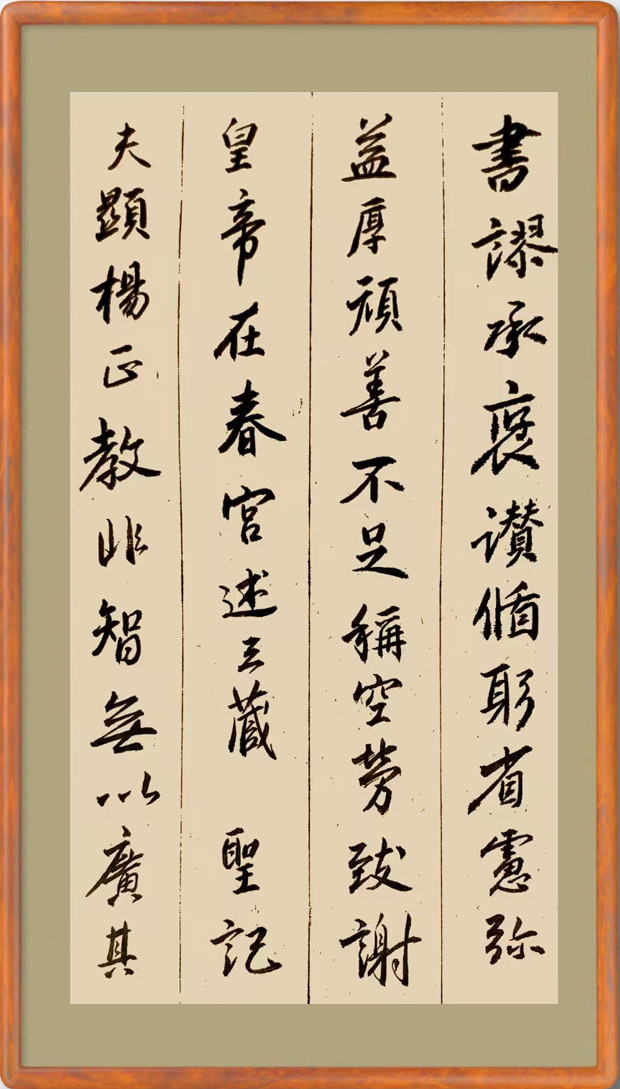 書謬承褒讃循躬省慮弥
益厚頑善不足稱空勞致謝
皇帝在春宮述三藏 聖記
夫顯楊正教非智無以廣其